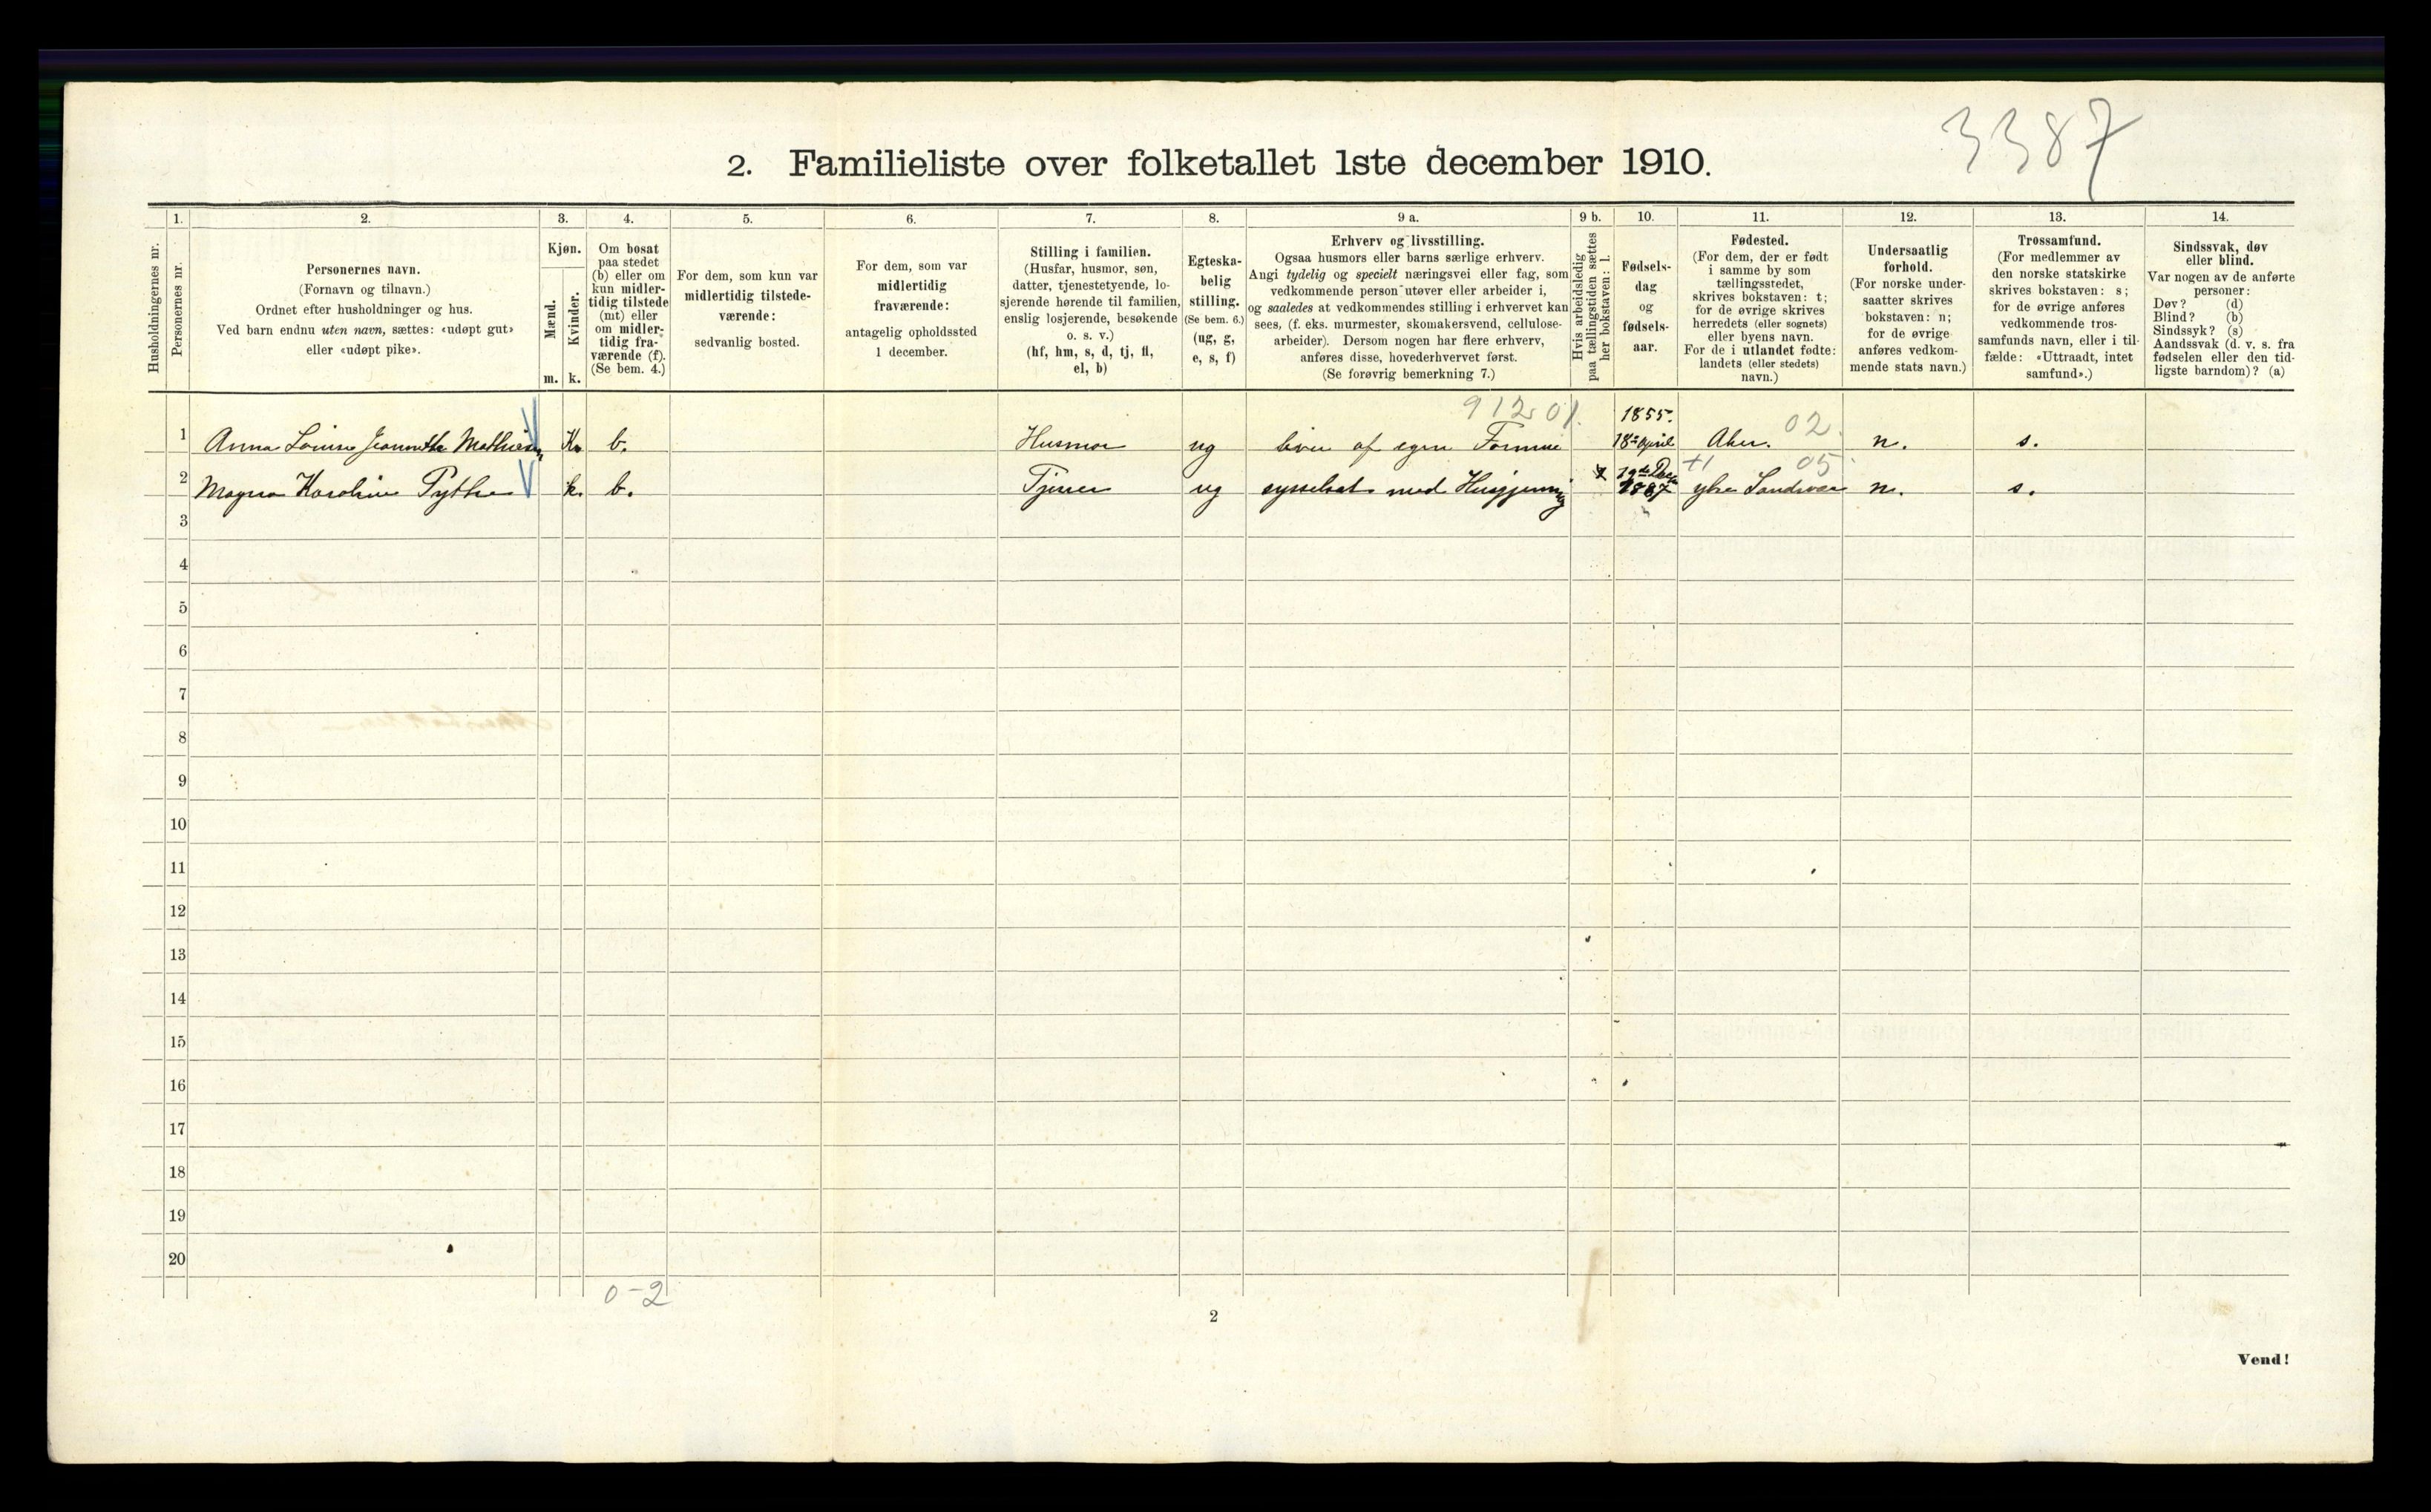 3387
2. Familieliste over folketallet 1ste december 1910.
Husholdningernes nr.
1.
Personernes nr.
2.
Personernes navn.
(Fornavn og tilnavn.)
Ordnet efter husholdninger og hus.
Ved barn endnu uten navn, sættes: «udøpt gut»
eller «udøpt pike».
3.
Kjøn.
Mænd.
Kvinder.
m. k.
4.
Om bosat
paa stedet
(b) eller om
kun midler-
tidig tilstede
(mt) eller
om midler-
tidig fra-
værende (f).
(Se bem. 4.)
5.
For dem, som kun var
midlertidig tilstede-
værende:
sedvanlig bosted.
6.
For dem, som var
midlertidig
fraværende:
antagelig opholdssted
1 december.
7.
Stilling i familien.
(Husfar, husmor, søn,
datter, tjenestetyende, lo-
sjerende hørende til familien,
enslig losjerende, besøkende
o. s. v.)
(hf, hm, s, d, tj, fl,
el, b)
8.
Egteska-
belig
stilling.
(Se bem. 6.)
(ug, g,
e, s, f)
9 a.
Erhverv og livsstilling.
Ogsaa husmors eller barns særlige erhverv.
Angi tydelig og specielt næringsvei eller fag, som
vedkommende person utøver eller arbeider i,
og saaledes at vedkommendes stilling i erhvervet kan
sees, (f. eks. murmester, skomakersvend, cellulose-
arbeider). Dersom nogen har flere erhverv,
anføres disse, hovederhvervet først.
(Se forøvrig bemerkning 7.)
9 b.
Hvis arbeidsledig
paa tællingstiden sættes
her bokstaven: l.
10.
Fødsels-
dag
og
fødsels-
aar.
11.
Fødested.
(For dem, der er født
i samme by som
tællingsstedet,
skrives bokstaven: t;
for de øvrige skrives
herredets (eller sognets)
eller byens navn.
For de i utlandet fødte:
landets (eller stedets)
navn.)
12.
Undersaatlig
forhold.
(For norske under-
saatter skrives
bokstaven: n;
for de øvrige
anføres vedkom-
mende stats navn.)
13.
Trossamfund.
(For medlemmer av
den norske statskirke
skrives bokstaven: s;
for de øvrige anføres
vedkommende tros-
samfunds navn, eller i til-
fælde: «Uttraadt, intet
samfund».)
14.
Sindssvak, døv
eller blind.
Var nogen av de anførte
personer:
Døv? (d)
Blind? (b)
Sindssyk? (s)
Aandssvak (d. v. s. fra
fødselen eller den tid-
ligste barndom)? (a)
912.01. 1855. 02.
1 Anna Louise Jeannette Mathiesen K. b. Husmor ug lever af egen Formue 18de April Aker. n. s.
19de Dec 05
2 Magna Karoline Pythe k. b. Tjener ug sysselsat med Husgjerning 1887 ytre Sandsvær n. s.
3
4
5
6
7
8
9
10
11
12
13
14
15
16
17
18
19
20
0-2
2
Vend!